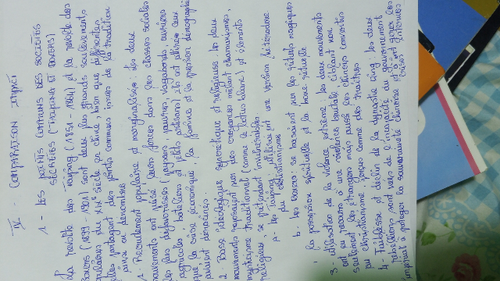 IV - COMPARAISON
1 - LES POINTS COMMUNS DES SOCIETES
SECRETES (TAIPING ET BOXERS)
La révolte des Taiping (1851-1864) et la révolte des
Boxers (1899-1901) sont deux plus grands soulèvements
populaires du 19e siècle en Chine. bien que différentes,
elles partagent des points communs issus de la tradition
1. Recrutement populaire et marginalisé : les deux
mouvements ont puisé leurs forces dans les classes sociales
les plus défavorisées (paysans pauvres, vagabonds, ouvriers
agricoles, bateliers et petits artisans) ils ont attiré ceux
que la crise économique, la famine et la pression démographique
avaient
2. Base idéologique syncrétique et religieuse les deux
mouvements reposaient sur des croyances mêlant chamanismes,
mysticisme traditionnel (comme le lotus blanc) et éléments
religieux, se prétendant invulnérables
a. Les Taiping utilisaient une version hétérodoxe
du christianisme
b. Les boxers se basaient sur les rituels magiques
la possession spirituelle et la boxe rituelle
3. utilisation de la violence extrême les deux mouvements
ont eu recours à une violence brutale, ciblant non
seulement les étrangers mais aussi les chinois convertis
au christianisme perçus comme des traîtres
4. faiblesse et déclin de la dynastie Qing les deux
rébellions sont nées de l'incapacité du gouvernement
impérial à protéger la souveraineté chinoise et à gérer les
crises internes